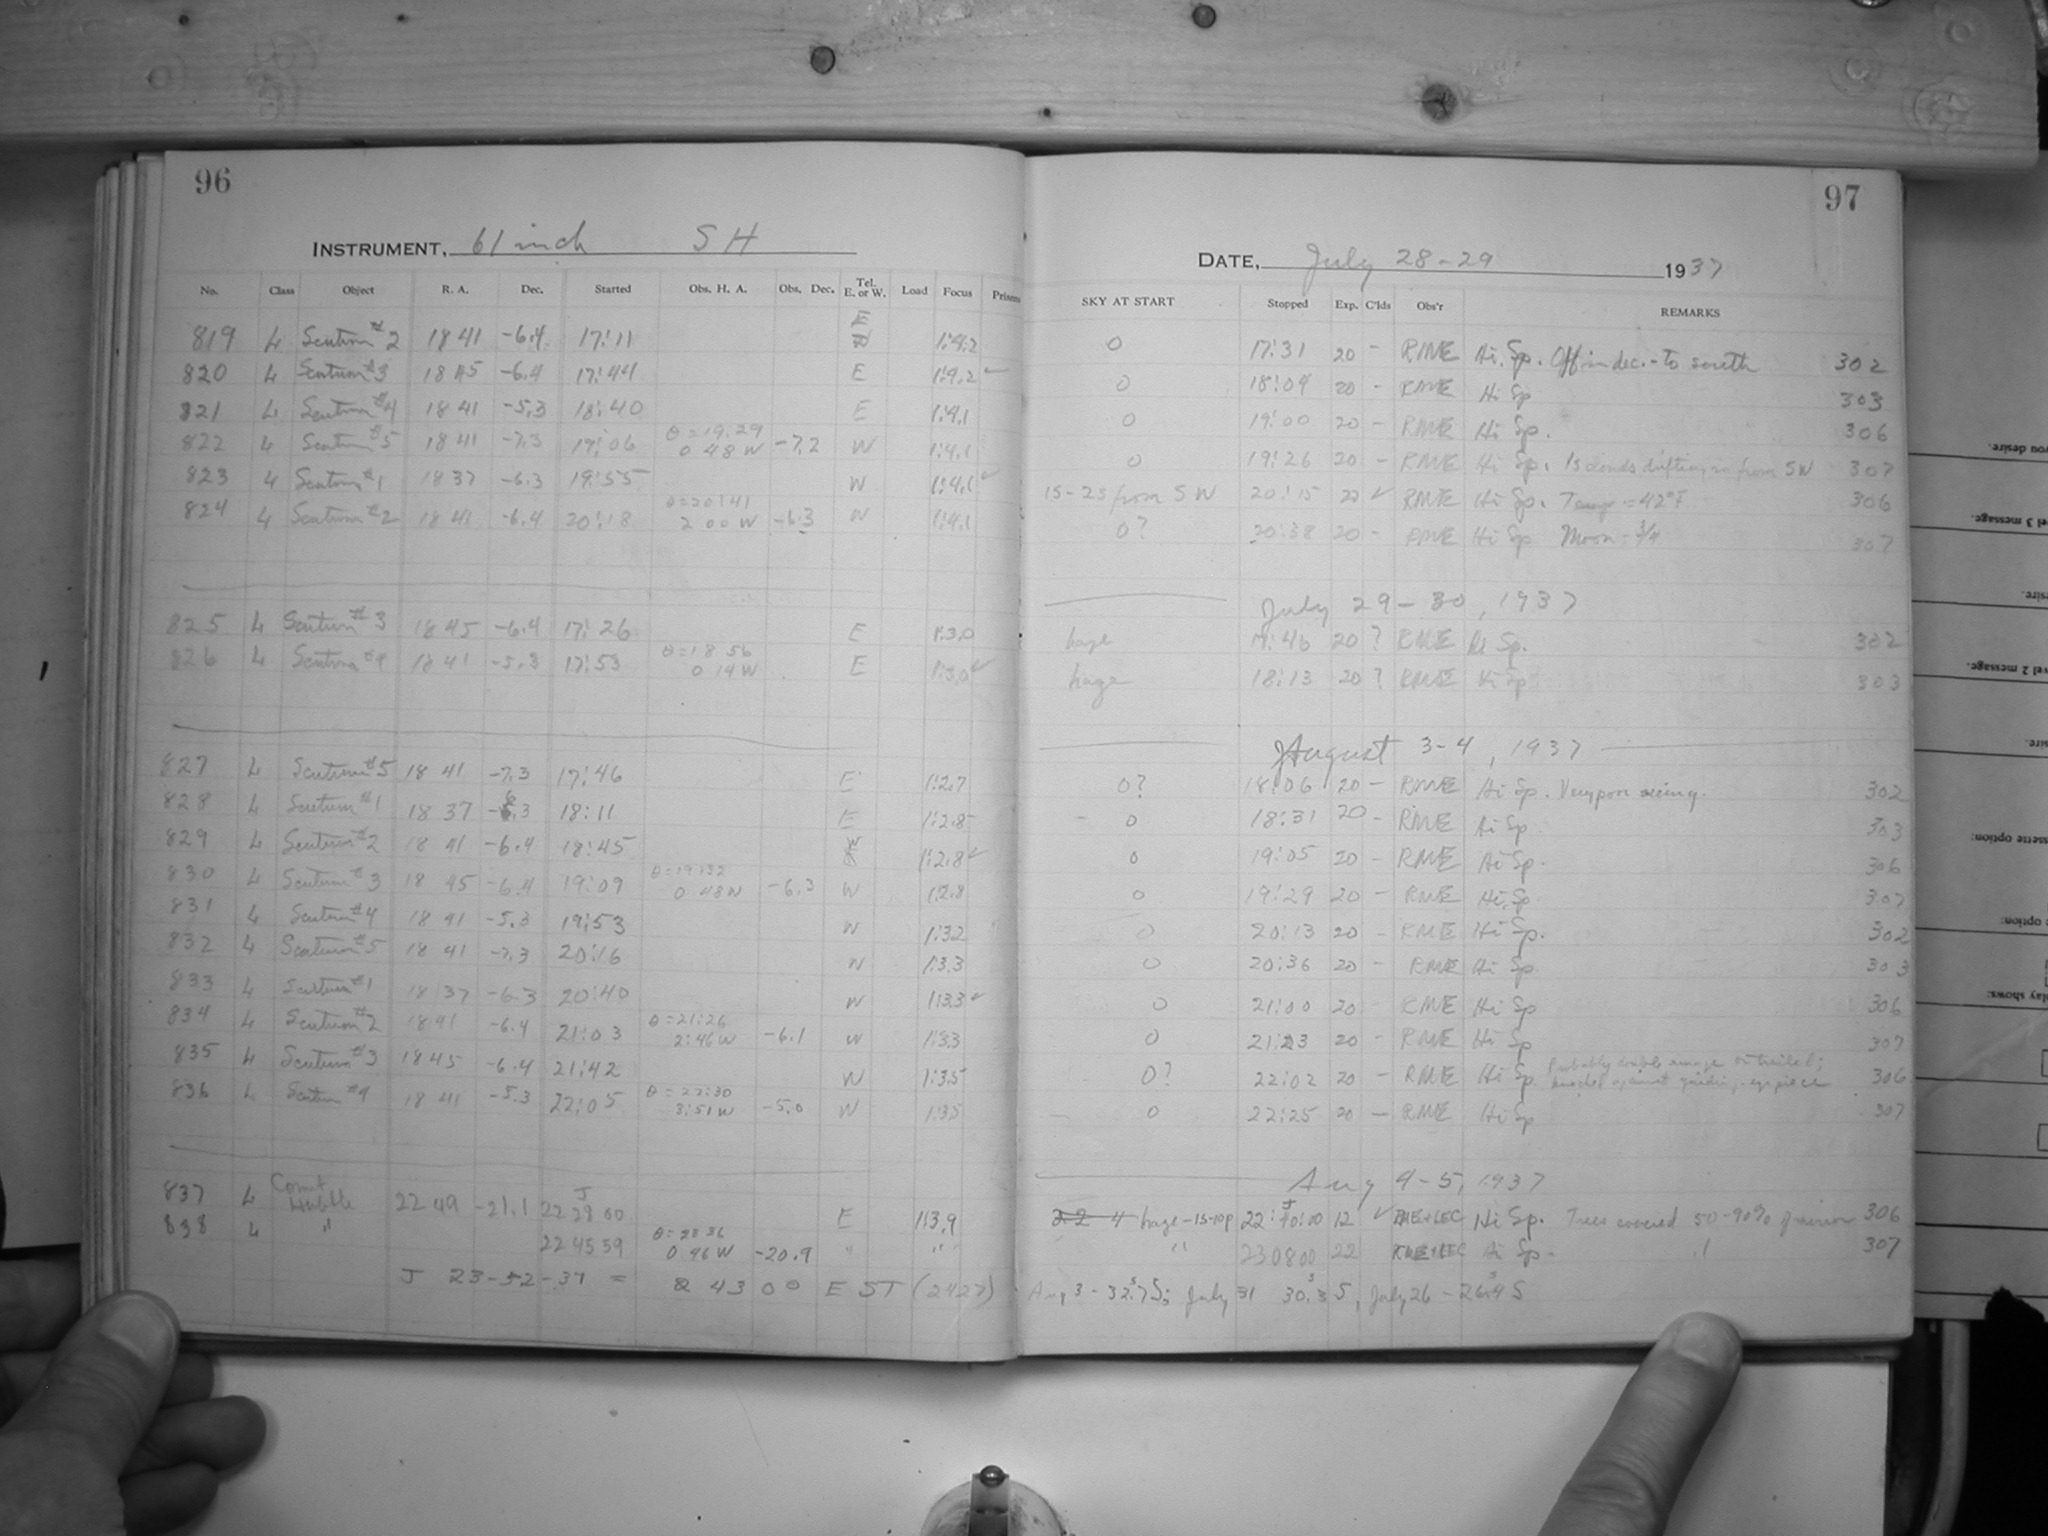 96
INSTRUMENT, 61 inch SH
No. Class Object R. A. Dec. Started Obs. H. A. Obs. Dec. Tel. E. or W. Load Focus Prisms
819 L Scutum #2 18 41 -6.4 17:11 E 1:4.2
820 L Scutum #3 18 45 -6.4 17:44 E 1:4.2 ✓
821 L Scutum #4 18 41 -5.3 18:40 E 1:4.1
822 L Scutum #5 18 41 -7.3 19:06 θ = 19:29 0 48 W -7.2 W 1:4.1
823 L Scutum #1 18 37 -6.3 19:55 W 1:4.1 ✓
824 L Scutum #2 18 41 -6.4 20:18 θ = 20:41 2 00 W -6.3 W 1:4.1
825 L Scutum #3 18 45 -6.4 17:26 E 1:3.0
826 L Scutum #4 18 41 -5.3 17:53 θ = 18 56 0 14 W E 1:3.0 ✓
827 L Scutum #5 18 41 -7.3 17:46 E 1:2.7
828 L Scutum #1 18 37 -6.3 18:11 E 1:2.8
829 L Scutum #2 18 41 -6.4 18:45 1:2.8 ✓
830 L Scutum #3 18 45 -6.4 19:09 θ = 19:32 0 48 W -6.3 W 1:2.8
831 L Scutum #4 18 41 -5.3 19:53 W 1:3.2
832 L Scutum #5 18 41 -7.3 20:16 W 1:3.3
833 L Scutum #1 18 37 -6.3 20:40 W 1:3.3 ✓
834 L Scutum #2 18 41 -6.4 21:03 θ = 21:26 2:46 W -6.1 W 1:3.3
835 L Scutum #3 18 45 -6.4 21:42 W 1:3.5
836 L Scutum #4 18 41 -5.3 22:05 θ = 22:30 3:51 W -5.0 W 1:3.5
837 L Comet Hubble 22 49 -21.1 J 22 28 00 E 1:3.9
838 L " 22 45 59 θ = 23 36 0 46 W -20.9 " "
J 23-52-37 = 2 43 00 EST (2427)
97
DATE, July 28-29 1937
SKY AT START Stopped Exp. C'lds Obs'r REMARKS
0 17:31 20 - RME Hi Sp. Off in dec. - to south 302
0 18:04 20 - RME Hi Sp 303
0 19:00 20 - RME Hi Sp. 306
0 19:26 20 - RME Hi Sp. 1s clouds drifting in from SW 307
1S-2S from SW 20:15 20 ✓ RME Hi Sp. Temp = 42°F 306
0? 20:38 20 - RME Hi Sp Moon = 3/4 307
July 29-30, 1937
haze 17:46 20 ? RME Hi Sp. 302
haze 18:13 20 ? RME Hi Sp 303
August 3-4, 1937
0? 18:06 20 - RME Hi Sp. Very poor seeing. 302
0 18:31 20 - RME Hi Sp 303
0 19:05 20 - RME Hi Sp. 306
0 19:29 20 - RME Hi Sp. 307
0 20:13 20 - RME Hi Sp. 302
0 20:36 20 - RME Hi Sp 303
0 21:00 20 RME Hi Sp 306
0 21:23 20 - RME Hi Sp 307
0? 22:02 20 - RME Hi Sp Probably double image or trailed; knocked against guiding eyepiece 306
0 22:25 20 - RME Hi Sp 307
Aug 4-5, 1937
haze - 1S-10p J 22:40:00 12 ✓ RME+LEC Hi Sp. Trees covered 50-90% of mirror 306
" 23 08 00 22 RME+LEC Hi Sp. " 307
Aug 3 - 32.7 S; July 31 30.3 S, July 26 - 26.4 S